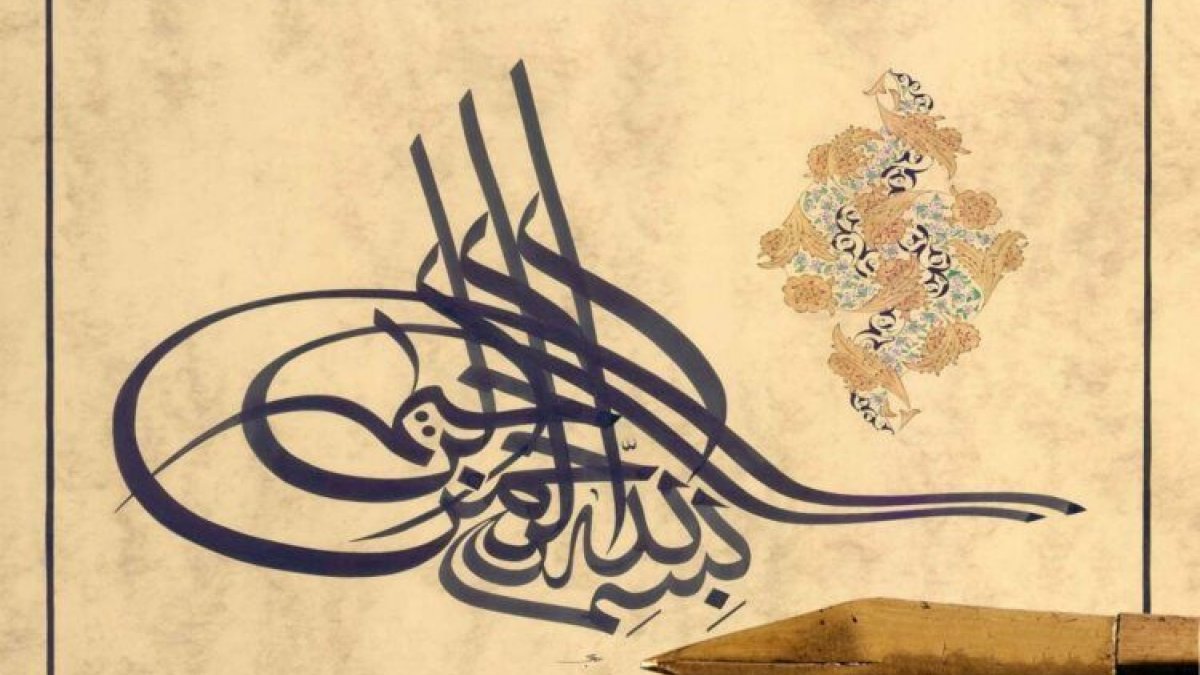 بِسمِ اللّٰه الرحمن الرحيم